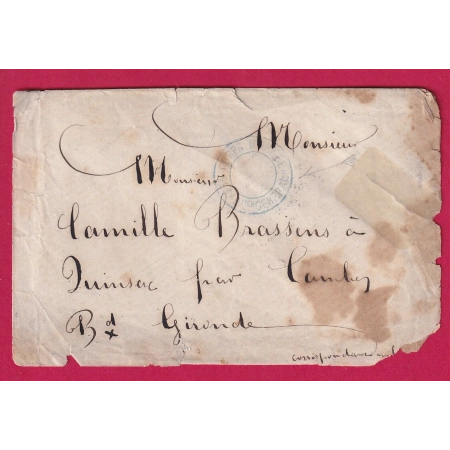 Monsieur
Monsieur
Camille Brassens à
Quinsac par Cambes
Bdx Gironde
correspondance